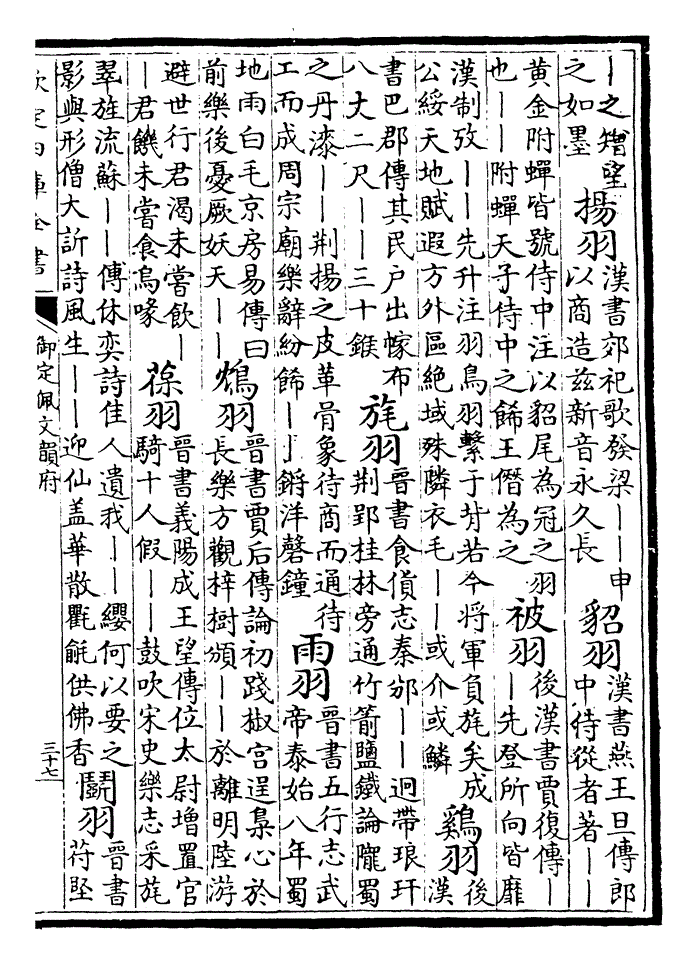 ｜之矰望
之如墨
揚羽
漢書郊祀歌發梁｜｜申
以商造茲新音永久長
貂羽
漢書燕王旦傳郎
中侍從者著｜｜
黃金附蟬皆號侍中注以貂尾為冠之羽
也｜｜附蟬天子侍中之餙王僭為之
被羽
後漢書賈復傳｜
｜先登所向皆靡
漢制攷｜｜先升注羽鳥羽繫于背若今将軍負旄矣成
公綏天地賦遐方外區絶域殊隣衣毛｜｜或介或鱗
鷄羽
後
漢
書巴郡傳其民户出幏布
八丈二尺｜｜三十鍭
旄羽
晉書食貨志秦邠｜｜迥帶琅玕
荆郢桂林旁通竹箭鹽鐵論隴蜀
之丹漆｜｜荆揚之皮革骨象待商而通待
工而成周宗廟樂辭紛餙｜｜鏘洋磬鐘
雨羽
晉書五行志武
帝泰始八年蜀
地雨白毛京房易傳曰
前樂後憂厥妖天｜｜
鴆羽
晉書賈后傳論初踐椒宫逞梟心於
長樂方觀梓樹頒｜｜於離明陸游
避世行君渴未嘗飲｜
｜君饑未嘗食烏喙
葆羽
晉書義陽成王望傳位太尉增置官
騎十人假｜｜鼓吹宋史樂志采旄
翠旌流蘇｜｜傳休奕詩佳人遺我｜｜纓何以要之
影與形僧大訢詩風生｜｜迎仙盖華散氍毹供佛香
鬭羽
晉書
苻堅
欽定四庫全書
御定佩文韻府
三十七